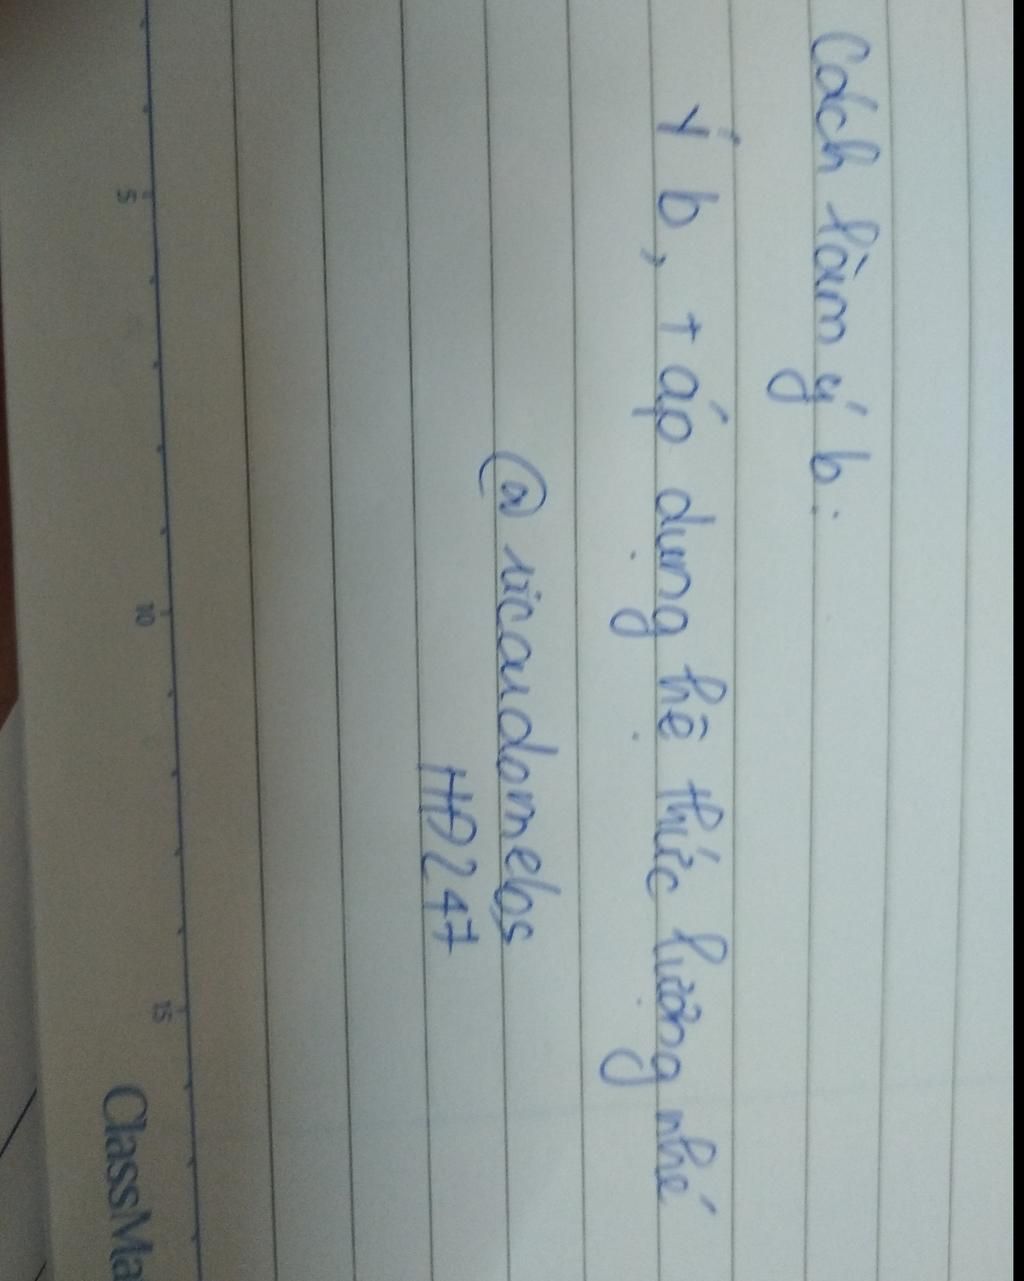 Cách làm ý b:
Ý b, + áp dụng hệ thức lượng nhé
@ ricardomebs
HĐ247
5
10
15
ClassMa